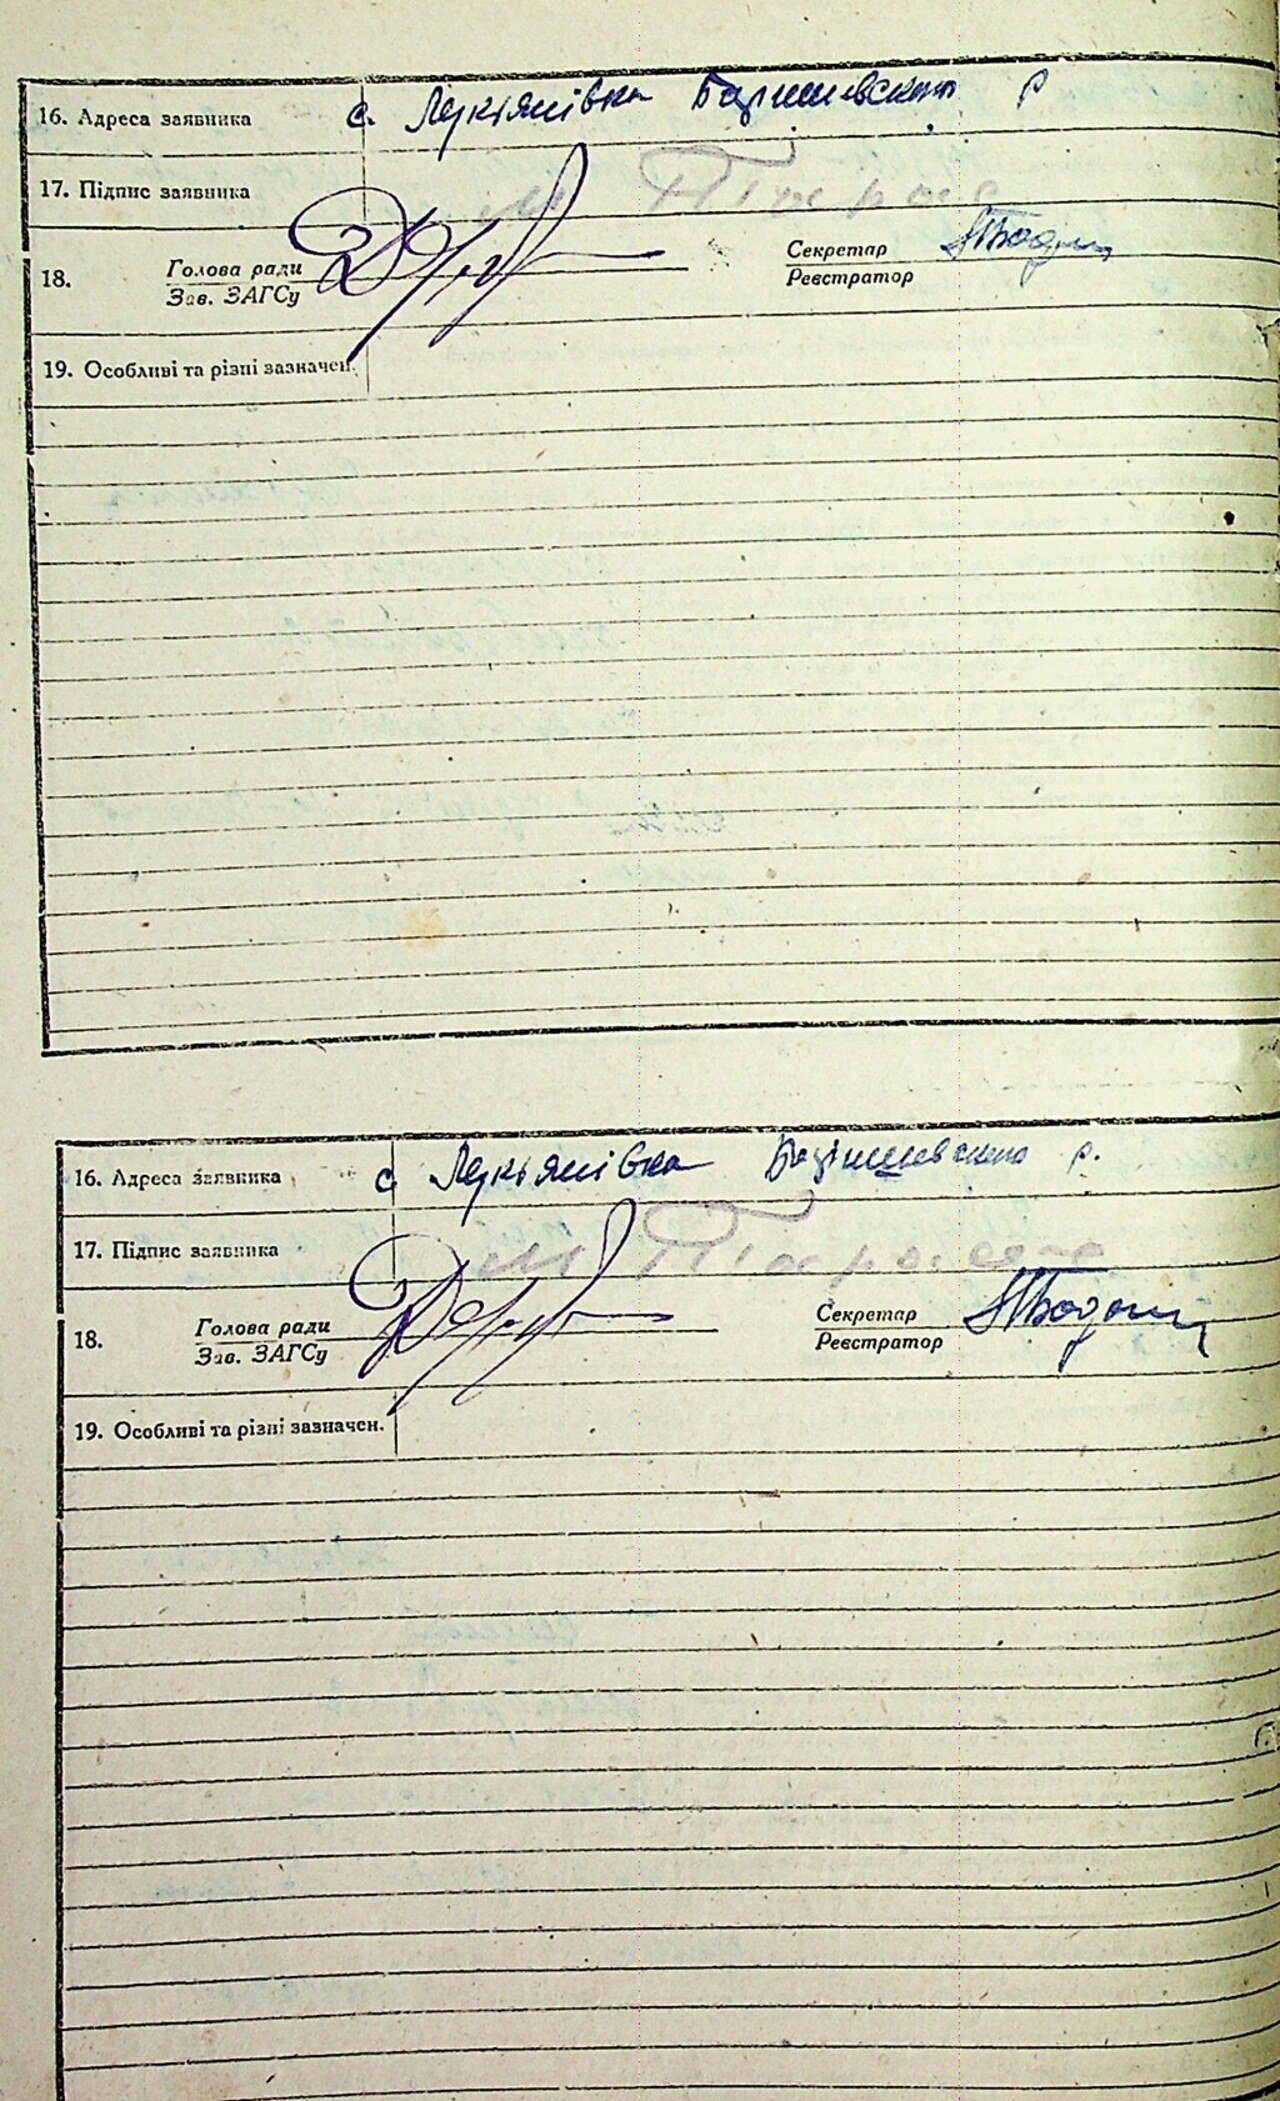 16. Адреса заявника с. Лукянівка Баришевского р
17. Підпис заявника
18. Голова ради Секретар
Зав. ЗАГСу Реєстратор
19. Особливі та різні зазначен.
16. Адреса заявника с Лукянівка Баришевского р.
17. Підпис заявника
18. Голова ради Секретар
Зав. ЗАГСу Реєстратор
19. Особливі та різні зазначен.